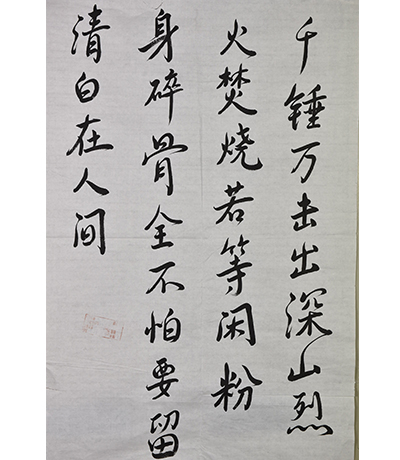 千锤万击出深山烈
火焚烧若等闲粉
身碎骨全不怕要留
清白在人间